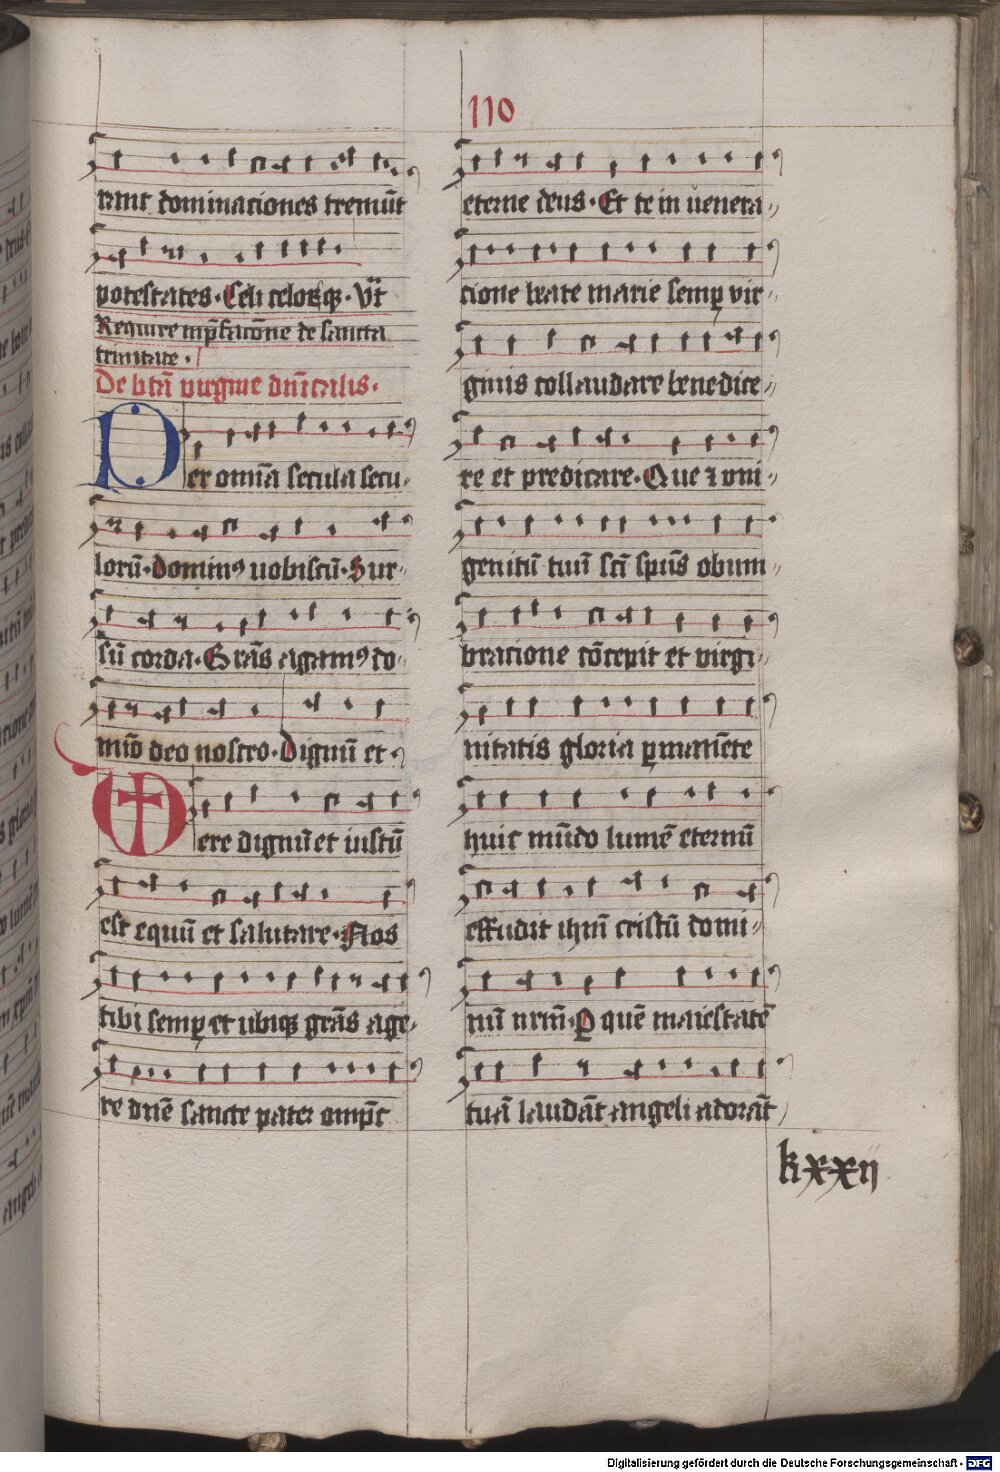 110
rant dominaciones tremūt
potestates. Celi celorꝫqꝫ. Vt̄
Require in p̄facōne de sancta
trinitate.
De btā virgine dn̄icalis.
Per omīa secula secu
lorū. dominꝰ uobiscū. Sur
sū corda. Grās agamꝰ do
mīo deo nostro. Dignū et
Vere dignū et iustū
est equū et salutare. Nos
tibi semꝑ et ubiqꝫ grās age
re dn̄e sancte pater omp̄s
eterne deus. Et te in uenera
cione beate marie semꝑ vir
ginis collaudare benedice
re et predicare. Que ⁊ vni
genitū tuū sc̄i sp̄us obum
bracione cōcepit et virgi
nitatis gloria ꝑmanēte
huic mūdo lumē eternū
effudit ihm̄ cristū domi
nū nrm̄. Ꝑ quē maiestatē
tuā laudāt angeli adorāt
kxxij
Digitalisierung gefördert durch die Deutsche Forschungsgemeinschaft - DFG